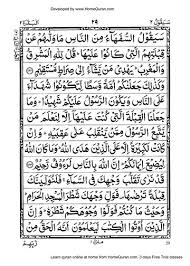 Developed by www.HomeQuran.com
سيقول ٢ ٢٥ البقرة ٢
سَيَقُوْلُ السُّفَهَآءُ مِنَ النَّاسِ مَا وَلّٰىهُمْ عَنْ
قِبْلَتِهِمُ الَّتِيْ كَانُوْا عَلَيْهَا ؕ قُلْ لِّلّٰهِ الْمَشْرِقُ
وَالْمَغْرِبُ ؕ يَهْدِيْ مَنْ يَّشَآءُ اِلٰى صِرَاطٍ مُّسْتَقِيْمٍ
وَكَذٰلِكَ جَعَلْنٰكُمْ اُمَّةً وَّسَطًا لِّتَكُوْنُوْا شُهَدَآءَ
عَلَى النَّاسِ وَيَكُوْنَ الرَّسُوْلُ عَلَيْكُمْ شَهِيْدًا ؕ
وَمَا جَعَلْنَا الْقِبْلَةَ الَّتِيْ كُنْتَ عَلَيْهَآ اِلَّا لِنَعْلَمَ
مَنْ يَّتَّبِعُ الرَّسُوْلَ مِمَّنْ يَّنْقَلِبُ عَلٰى عَقِبَيْهِ ؕ وَاِنْ
كَانَتْ لَكَبِيْرَةً اِلَّا عَلَى الَّذِيْنَ هَدَى اللّٰهُ ؕ وَمَا كَانَ اللّٰهُ
لِيُضِيْعَ اِيْمَانَكُمْ ؕ اِنَّ اللّٰهَ بِالنَّاسِ لَرَءُوْفٌ رَّحِيْمٌ
قَدْ نَرٰى تَقَلُّبَ وَجْهِكَ فِي السَّمَآءِ ۚ فَلَنُوَلِّيَنَّكَ
قِبْلَةً تَرْضٰىهَا ۪ فَوَلِّ وَجْهَكَ شَطْرَ الْمَسْجِدِ الْحَرَامِ ؕ
وَحَيْثُ مَا كُنْتُمْ فَوَلُّوْا وُجُوْهَكُمْ شَطْرَهٗ ؕ وَاِنَّ
الَّذِيْنَ اُوْتُوا الْكِتٰبَ لَيَعْلَمُوْنَ اَنَّهُ الْحَقُّ مِنْ
رَّبِّهِمْ
Learn quran online at home from HomeQuran.com. 3 days Free Trial classes